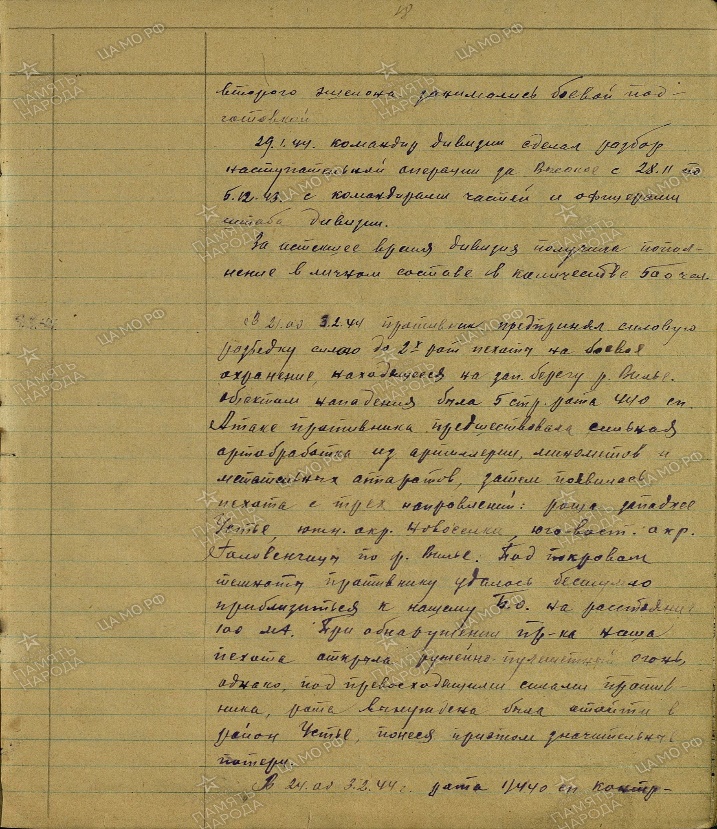 18
второго эшелона занимались боевой под-
готовкой
29.1.44. командир дивизии сделал разбор
наступательной операции за Высокое с 28.11 по
5.12.43. с командирами частей и офицерами
штаба дивизии.
За истекшее время дивизия получила попол-
нение в личном составе в количестве 550 чел.
В 21.00 3.2.44 противник предпринял силовую
разведку силою до 2х рот пехоты на боевое
охранение, находящееся на зап. берегу р.
объектом нападения была 5 стр. рота 440 сп.
Атаке противника предшествовала сильная
артобработка из артиллерии, минометов и
метательных аппаратов, затем появилась
пехота с трех направлений: роща западнее
Устье, южн. окр. Новоселки, юго-вост. окр.
Головенчицы по р. Под покровом
темноты противнику удалось бесшумно
приблизиться к нашему Б.О. на расстояние
100 мт. При обнаружении пр-ка наша
пехота открыла ружейно-пулеметный огонь,
однако, под превосходящими силами против
ника, рота вынуждена была отойти в
район Устье, понеся притом значительные
потери.
В 24.00 3.2.44 г. рота 1/440 сп контр-